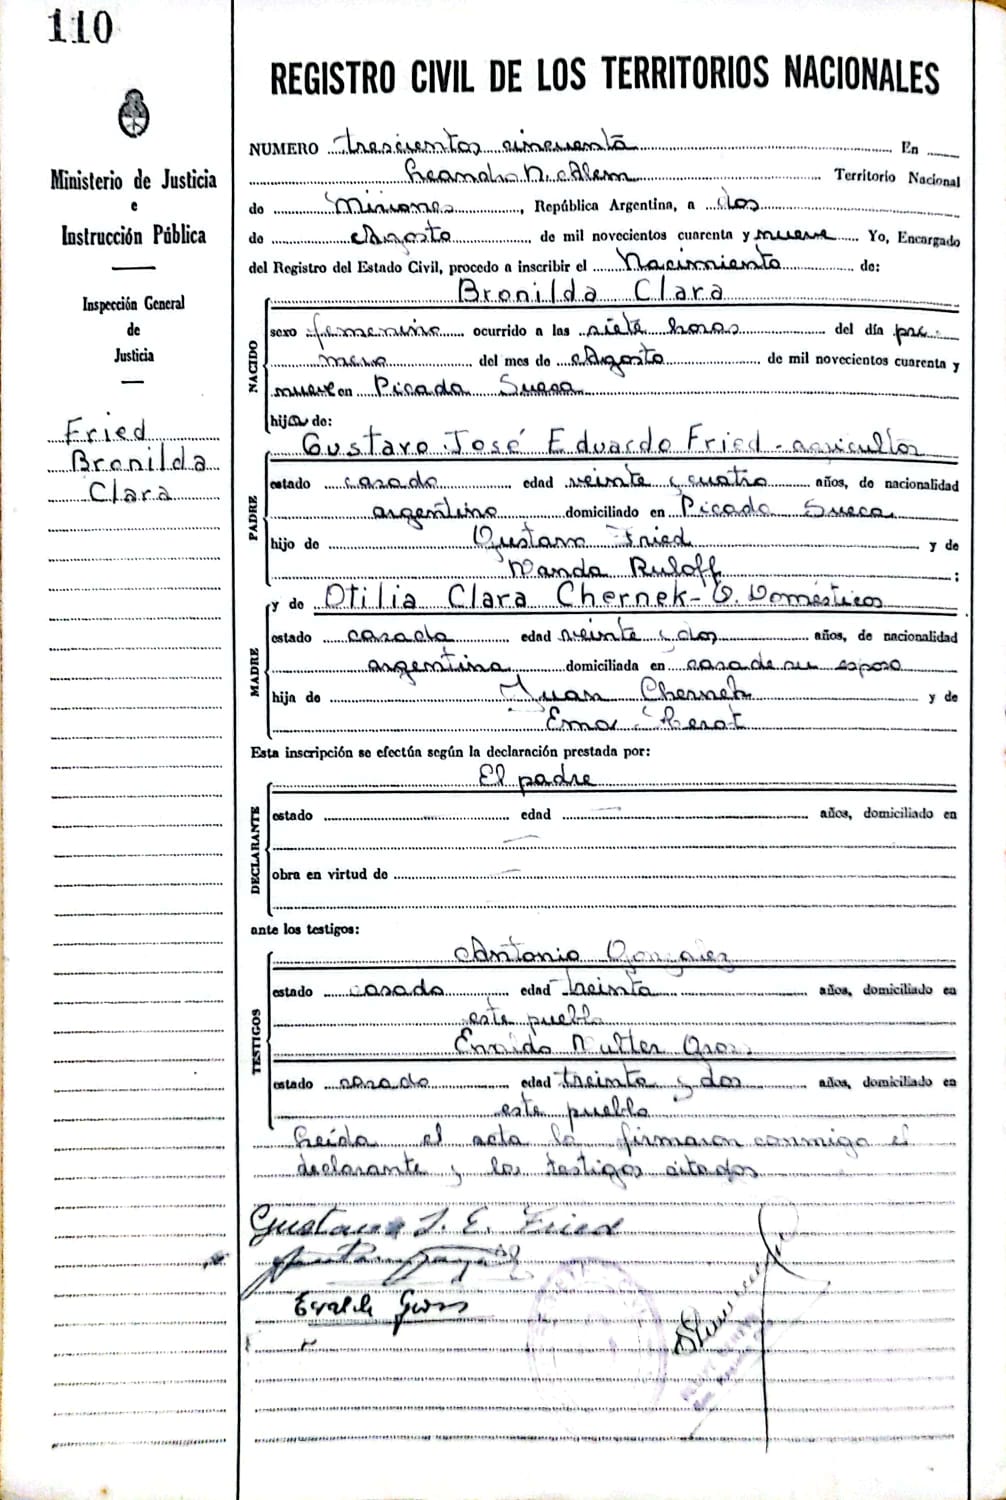 110
REGISTRO CIVIL DE LOS TERRITORIOS NACIONALES
Ministerio de Justicia
e
Instrucción Pública
Inspección General
de
Justicia
Fried
Bronilda
Clara
NUMERO trescientos cincuenta En
Leandro N. Alem Territorio Nacional
de Misiones, República Argentina, a dos
de Agosto de mil novecientos cuarenta y nueve Yo, Encargado
del Registro del Estado Civil, procedo a inscribir el Nacimiento de:
NACIDO
Bronilda Clara
sexo femenino ocurrido a las siete horas del día pri-
mero del mes de Agosto de mil novecientos cuarenta y
nueve en Picada Sueca
hija de:
PADRE
Gustavo José Eduardo Fried - agricultor
estado casado edad veinte y cuatro años, de nacionalidad
argentino domiciliado en Picada Sueca
hijo de Gustavo Fried y de
Wanda Ruloff ;
MADRE
y de Otilia Clara Chernek - Q. Domésticos
estado casada edad veinte y dos años, de nacionalidad
argentina domiciliada en casa de su esposo
hija de Juan Chernek y de
Ema
Esta inscripción se efectúa según la declaración prestada por:
DECLARANTE
El padre
estado edad años, domiciliado en
obra en virtud de
ante los testigos:
TESTIGOS
Antonio Gonzalez
estado casado edad treinta años, domiciliado en
este pueblo
estado casado edad treinta y dos años, domiciliado en
este pueblo
Leída el acta la firmaron conmigo el
declarante y los testigos citados
Gustavo J. E. Fried